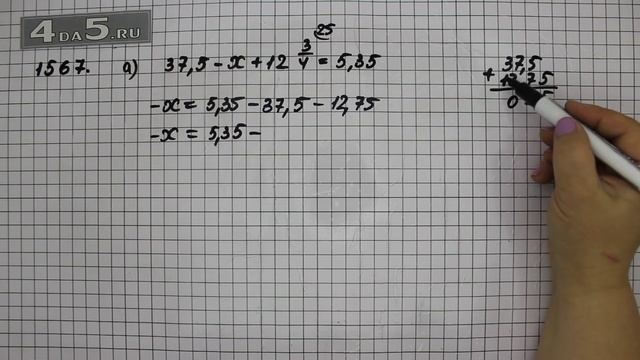 4DA5.RU
1567. а) 37,5 - x + 12 3/4 = 5,35
25
-x = 5,35 - 37,5 - 12,75
-x = 5,35 -
37,5
+ 12,75
0